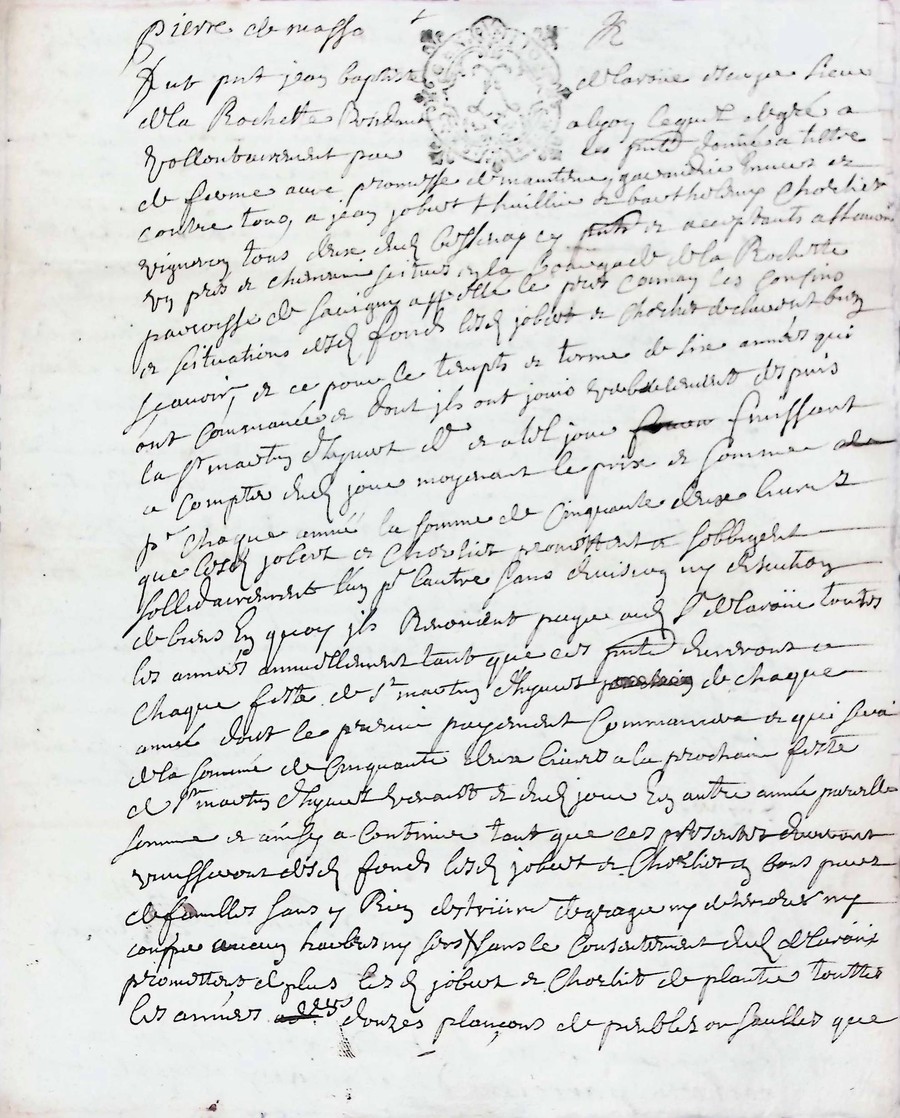 pierre de masso
fut pnt jean baptiste delavoüe sieur
de la Rochette Residant a lyon lequel de gré a
vollontairement par ces pnte donnée a tiltre
de ferme avec promesse de maintenir garandir envers et
contre tous, a jean jobert thuillier et barthelemy Chorliet
vigneron tous deux dud bessenay cy pnts et acceptants assavoir
un prés et chenevier scitués en la de la Rochette
parroisse de Savigny appellé le prés les confins
et scituations desd fonds lesd jobert et Chorliet declarent bien
scavoir, et ce pour le temps et terme de six années qui
ont commancé et dont ils ont joüis verballement depuis
la St martin d'hyvert dr et a tel jour finissant
a compter dud jour moyenant le prix et somme de
pr chaque année la somme de cinquante deux livres
que lesd jobert et Chorliet promettent et sobbligent
sollidairement l'un pr l'autre sans division ny discution
de biens en quoy ils Renoncent payer aud Sr delavoüe toutes
les années annuellement tant que ces pnte dureront a
chaque feste de St martin d'hyvert de chaque
année dont le premier payement commancera et qui sera
de la somme de cinquante deux livres a la prochaine feste
de St martin d'hyvert venant et dud jour en autre année pareille
somme et ainsy a continuer tant que ces presentes dureront
desd fonds lesd jobert et Chorliet en bons peres
de familles sans y Rien detruire degrader ny deteriorer ny
couper aucun harbres ny sans le consentement dud delavoüe
promettent de plus lesd jobert et Chorliet de planter touttes
les années douzes plançons de peubles ou saulles que